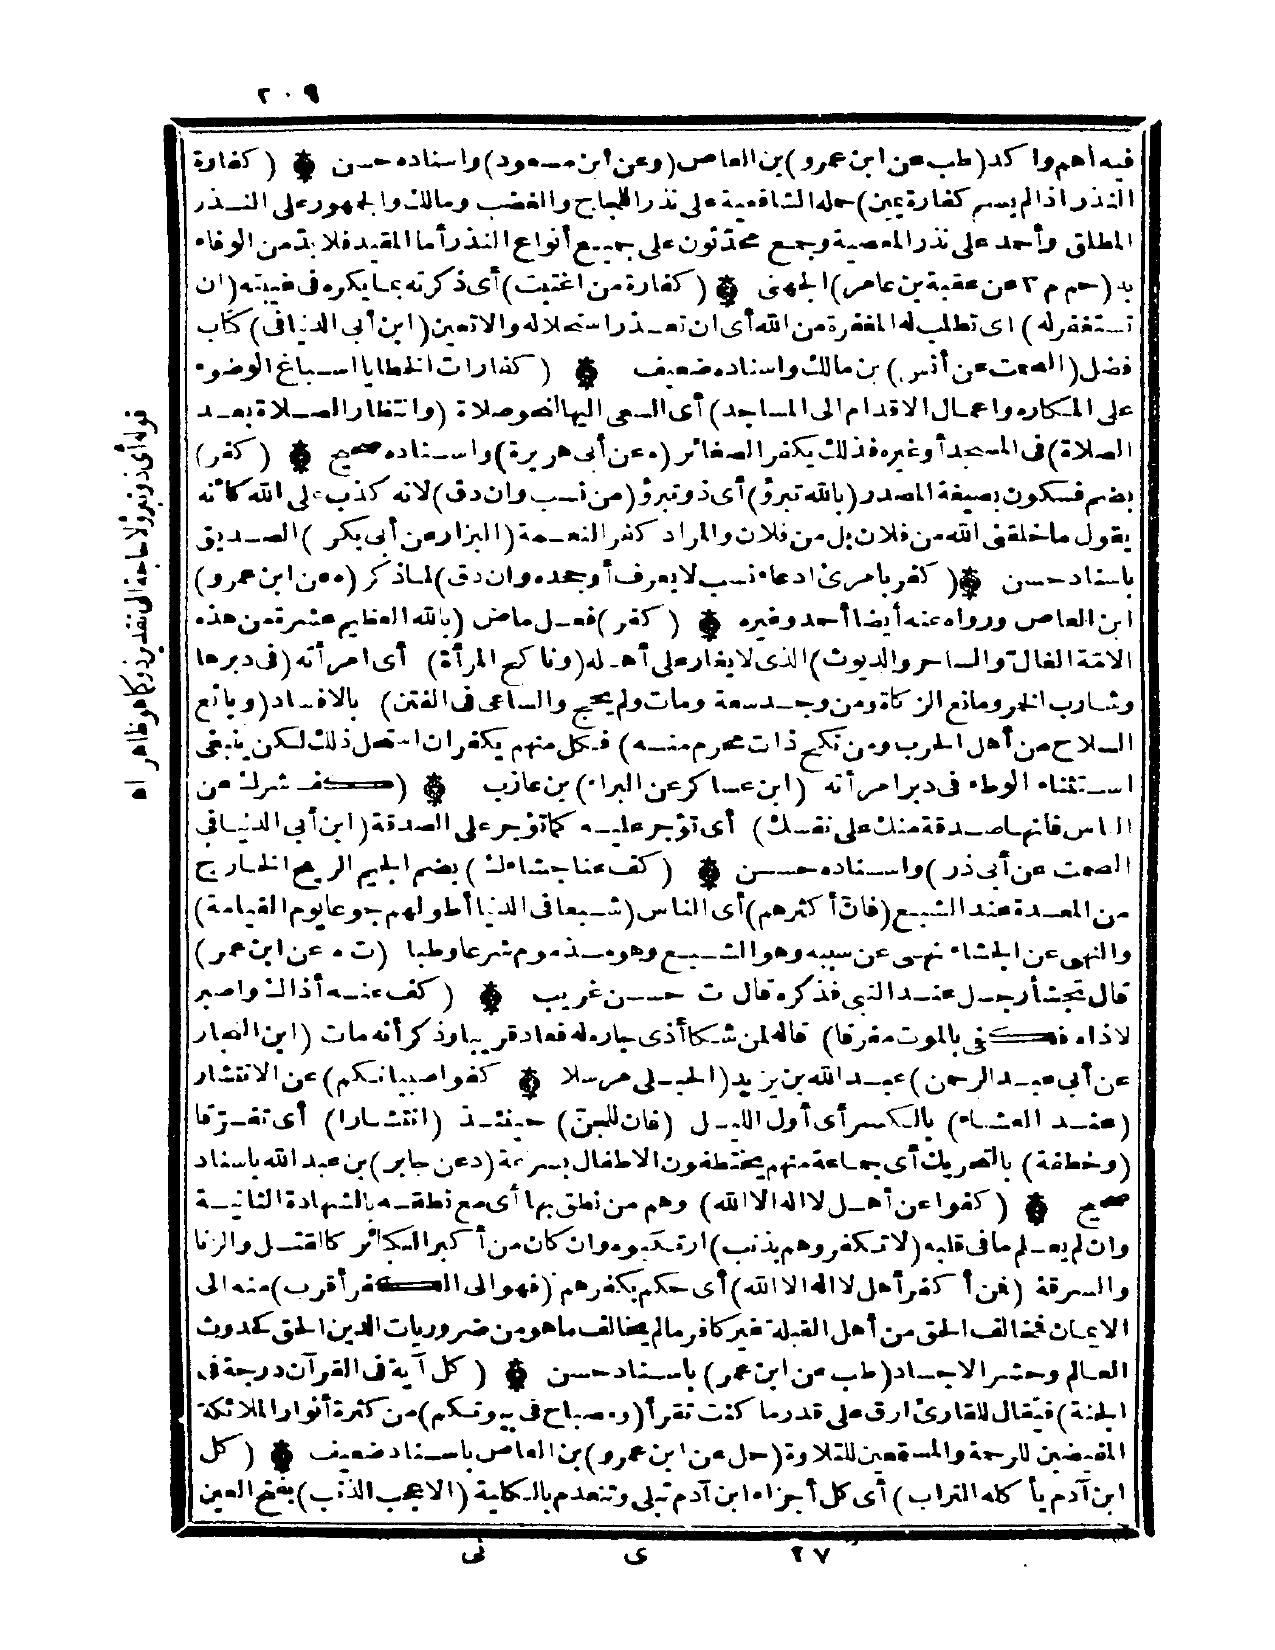 ٢٠٩
فيه أهم وآكد (طب عن ابن عمرو) بن العاص (وعن ابن مسعود) واسناده حسن ۞ (كفارة
النذر اذا لم يسم كفارة يمين) حمله الشافعية على نذر اللجاج والغضب ومالك والجمهور على النذر
المطلق وأحمد على نذر المعصية وجمع محدثون على جميع أنواع النذر أما المقيد فلا بدّ من الوفاء
به (حم م ٣ عن عقبة بن عامر) الجهنى ۞ (كفارة من اغتبت) أى ذكرته بما يكره فى غيبته (ان
تستغفر له) اى تطلب له المغفرة من الله أى ان تعذر استحلاله والا تعين (ابن أبى الدنيا فى) كتاب
فضل (الصمت عن أنس) بن مالك واسناده ضعيف ۞ (كفارات الخطايا اسباغ الوضوء
على المكاره واعمال الاقدام الى المساجد) أى السعى اليها لنحو صلاة (وانتظار الصلاة بعد
الصلاة) فى المسجد أو غيره فذلك يكفر الصغائر (ه عن أبى هريرة) واسناده صحيح ۞ (كفر)
بضم فسكون بصيغة المصدر (بالله تبرؤ) أى ذو تبرؤ (من نسب وان دق) لانه كذب على الله كأنه
يقول ما خلقنى الله من فلان بل من فلان والمراد كفر النعمة (البزار عن أبى بكر) الصديق
باسناد حسن ۞ (كفر بامرئ ادعاء نسب لا يعرف أو جحده وان دق) لما ذكر (ه عن ابن عمرو)
ابن العاص ورواه عنه أيضا أحمد وغيره ۞ (كفر) فعل ماض (بالله العظيم عشرة من هذه
الامة الغالّ والساحر والديوث) الذى لا يغار على أهله (وناكح المرأة) أى امرأته (فى دبرها
وشارب الخمر ومانع الزكاة ومن وجد سعة ومات ولم يحج والساعى فى الفتن) بالافساد (وبائع
السلاح من أهل الحرب ومن نكح ذات محرم منه) فكل منهم يكفر ان استحل ذلك لكن ينبغى
استثناء الوطء فى دبر امرأته (ابن عساكر عن البراء) بن عازب ۞ (كف شرك عن
الناس فانها صدقة منك على نفسك) أى تؤجر عليه كما تؤجر على الصدقة (ابن أبى الدنيا فى
الصمت عن أبى ذر) واسناده حسن ۞ (كف عنا جشاءك) بضم الجيم الريح الخارج
من المعدة عند الشبع (فانّ أكثرهم) أى الناس (شبعا فى الدنيا أطولهم جوعا يوم القيامة)
والنهى عن الجشاء نهى عن سببه وهو الشبع وهو مذموم شرعا وطبا (ت ه عن ابن عمر)
قال تجشأ رجل عند النبى فذكره قال ت حسن غريب ۞ (كف عنه أذاك واصبر
لاذاه فكفى بالموت مفرقا) قاله لمن شكا أذى جاره له فعاد قريبا وذكر أنه مات (ابن النجار
عن أبى عبد الرحمن) عبد الله بن يزيد (الحبلى مرسلا ۞ كفوا صبيانكم) عن الانتشار
(عند العشاء) بالكسر أى أول الليل (فان للجنّ) حينئذ (انتشارا) أى تفرّقا
(وخطفة) بالتحريك أى جماعة منهم يختطفون الاطفال بسرعة (د عن جابر) بن عبد الله باسناد
صحيح ۞ (كفوا عن أهل لا اله الا الله) وهم من نطق بها أى مع نطقه بالشهادة الثانية
وان لم يعلم ما فى قلبه (لا تكفروهم بذنب) ارتكبوه وان كان من أكبر الكبائر كالقتل والزنا
والسرقة (فمن أكفر أهل لا اله الا الله) أى حكم بكفرهم (فهو الى الكفر أقرب) منه الى
الايمان فمخالف الحق من أهل القبلة غير كافر ما لم يخالف ما هو من ضروريات الدين الحق كحدوث
العالم وحشر الاجساد (طب عن ابن عمر) باسناد حسن ۞ (كل آية فى القرآن درجة فى
الجنة) فيقال للقارئ ارق على قدر ما كنت تقرأ (ومصباح فى بيوتكم) من كثرة أنوار الملائكة
المفيضين للرحمة والمستمعين للتلاوة (حل عن ابن عمرو) بن العاص باسناد ضعيف ۞ (كل
ابن آدم يأكله التراب) أى كل أجزاء ابن آدم تبلى وتنعدم بالكلية (الا عجب الذنب) بفتح العين
٢٧ ى نى
قوله أى ذو تبرؤ لا حاجة الى تقدير ذو كما هو ظاهر اه